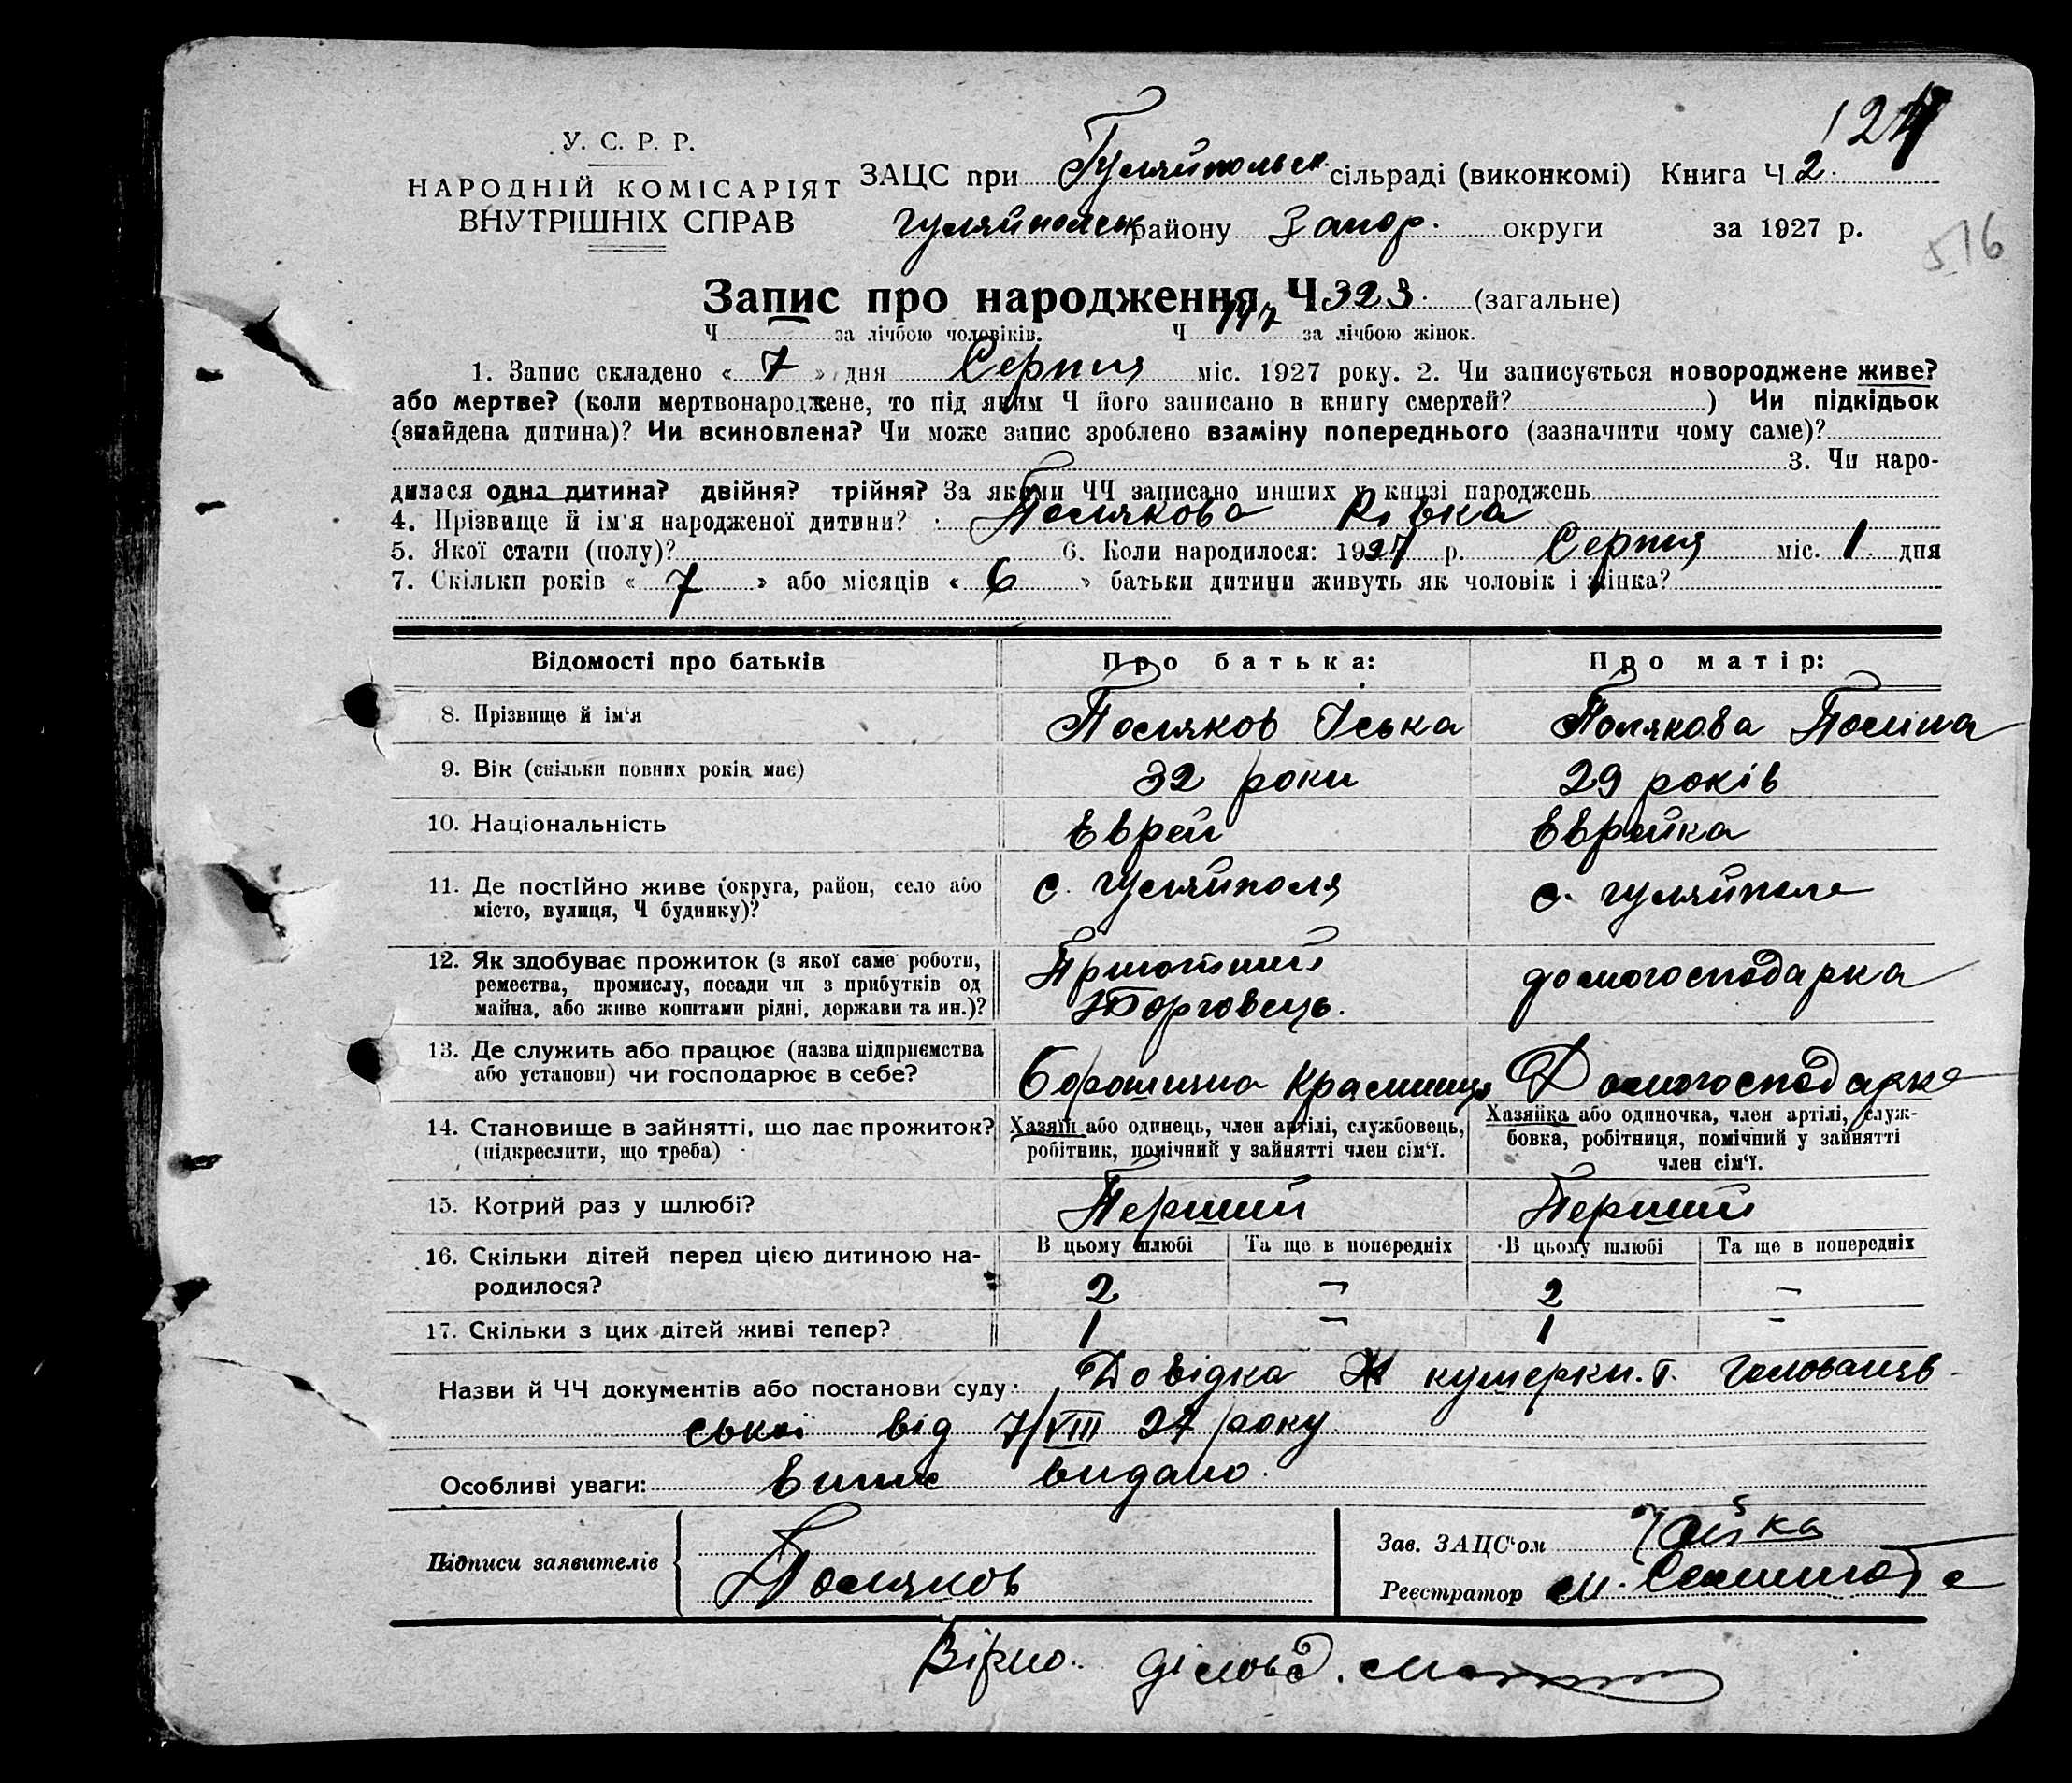 124
У. С. Р. Р.
НАРОДНІЙ КОМІСАРІЯТ
ВНУТРІШНІХ СПРАВ
ЗАЦС при Гуляйпольск. сільраді (виконкомі) Книга Ч 2.
Гуляйпольськ району Запор. округи за 1927 р.
516
Запис про народження Ч 323. (загальне)
Ч за лічбою чоловіків. Ч за лічбою жінок.
1. Запис складено « 7 » дня Серпня міс. 1927 року. 2. Чи записується новороджене живе?
або мертве? (коли мертвонароджене, то під яким Ч його записано в книгу смертей? ) Чи підкідьок
(знайдена дитина)? Чи всиновлена? Чи може запис зроблено взаміну попереднього (зазначити чому саме)?
3. Чи наро-
дилася одна дитина? двійня? трійня? За якими ЧЧ записано инших у книзі народжень
4. Прізвище й ім'я народженої дитини? Полякова Рівка
5. Якої стати (полу)? 6. Коли народилося: 1927 р. Серпня міс. 1 дня
7. Скільки років « 7 » або місяців « 6 » батьки дитини живуть як чоловік і жінка?
Відомості про батьків Про батька: Про матір:
8. Прізвище й ім‘я Поляков Іська Полякова Поліна
9. Вік (скільки повних років має) 32 роки 29 років
10. Національність Еврей Еврейка
11. Де постійно живе (округа, район, село або
місто, вулиця, Ч будинку)? с. Гуляйполя с. Гуляйполе
12. Як здобуває прожиток (з якої саме роботи,
ремества, промислу, посади чи з прибутків од
майна, або живе коштами рідні, держави та ин.)? Торговець. домогосподарка
13. Де служить або працює (назва підприємства
або установи) чи господарює в себе? Борошняна Крамниця Домогосподарка
14. Становище в зайнятті, що дає прожиток?
(підкреслити, що треба)
Хазяїн або одинець, член артілі, службовець,
робітник, помічний у зайнятті член сім‘ї.
Хазяйка або одиночка, член артілі, служ-
бовка, робітниця, помічний у зайнятті
член сім‘ї.
15. Котрий раз у шлюбі? Перший Перший
16. Скільки дітей перед цією дитиною на-
родилося?
В цьому шлюбі Та ще в попередніх В цьому шлюбі Та ще в попередніх
2 – 2 –
17. Скільки з цих дітей живі тепер? 1 – 1 –
Назви й ЧЧ документів або постанови суду: Довідка Головані­в-
ської від 7/VIII 27 року
Особливі уваги: Випис видано.
Підписи заявителів Поляков
Зав. ЗАЦС‘ом
Реєстратор
Вірно. діловод.